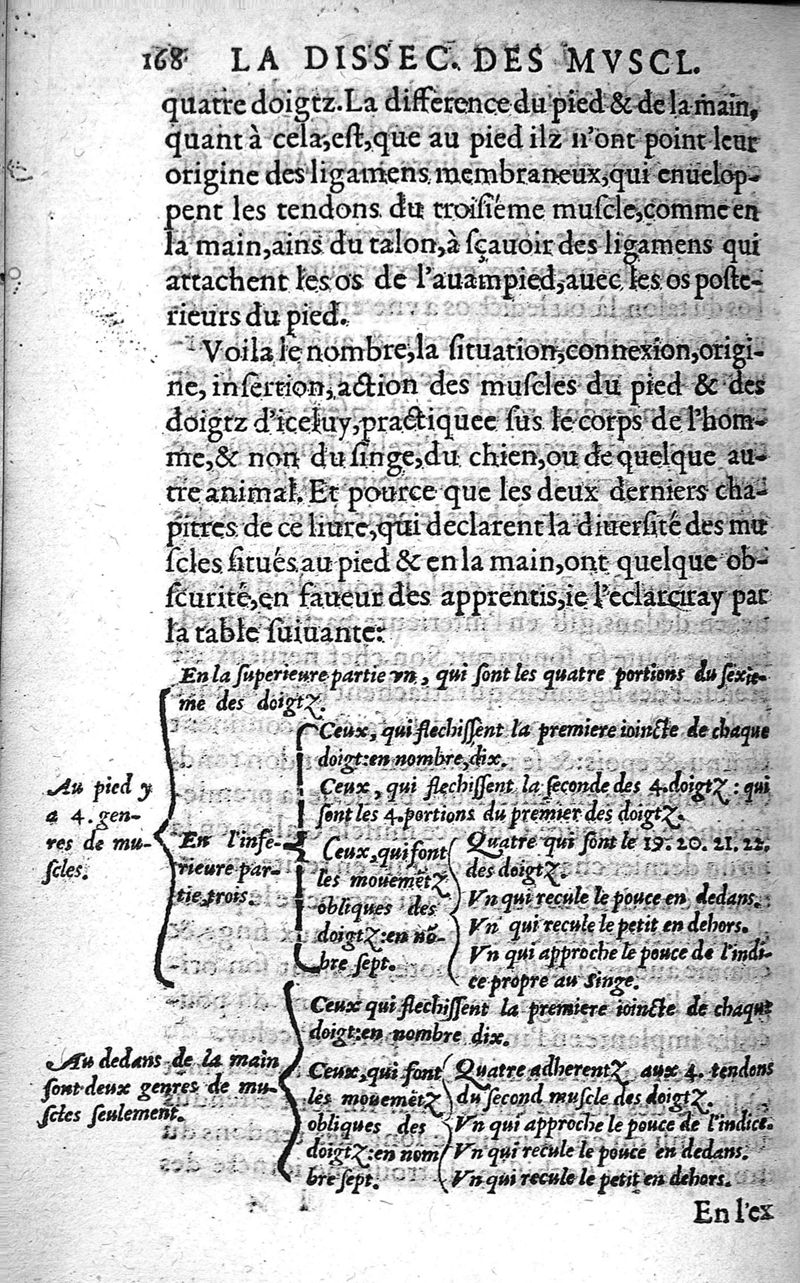 168 LA DISSEC. DES MVSCL.
quatre doigtz. La difference du pied & de la main,
quant à cela, est, que au pied ilz n'ont point leur
origine des ligamens membraneux, qui enuelop-
pent les tendons du troisiéme muscle, comme en
la main, ains du talon, à sçauoir des ligamens qui
attachent les os de l'auampied, auec les os poste-
rieurs du pied.
Voila le nombre, la situation, connexion, origi-
ne, insertion, action des muscles du pied & des
doigtz d'iceluy, practiquee sus le corps de l'hom-
me, & non du singe, du chien, ou de quelque au-
tre animal. Et pource que les deux derniers cha-
pitres de ce liure, qui declarent la diuersité des mu
scles situés au pied & en la main, ont quelque ob-
scurité, en faueur des apprentis, ie l'eclarciray par
la table suiuante:
Au pied y
a 4. gen-
res de mu-
scles.
En la superieure partie vn, qui sont les quatre portions du sexie-
me des doigtz.
En l'infe-
rieure par-
tie, trois.
Ceux, qui flechissent la premiere ioincte de chaque
doigt: en nombre, dix.
Ceux, qui flechissent la seconde des 4. doigtz: qui
sont les 4. portions du premier des doigtz.
Ceux, qui font
les mouemẽtz
obliques des
doigtz: en nõ-
bre sept.
Quatre qui sont le 19. 20. 21. 22.
des doigtz.
Vn qui recule le pouce en dedans.
Vn qui recule le petit en dehors.
Vn qui approche le pouce de l'indi-
ce propre au Singe.
Au dedans de la main
sont deux genres de mu-
scles seulement.
Ceux qui flechissent la premiere ioincte de chaque
doigt: en nombre dix.
Ceux, qui font
les mouemẽtz
obliques des
doigtz: en nom
bre sept.
Quatre adherentz aux 4. tendons
du second muscle des doigtz.
Vn qui approche le pouce de l'indice.
Vn qui recule le pouce en dedans.
Vn qui recule le petit en dehors.
En l'ex